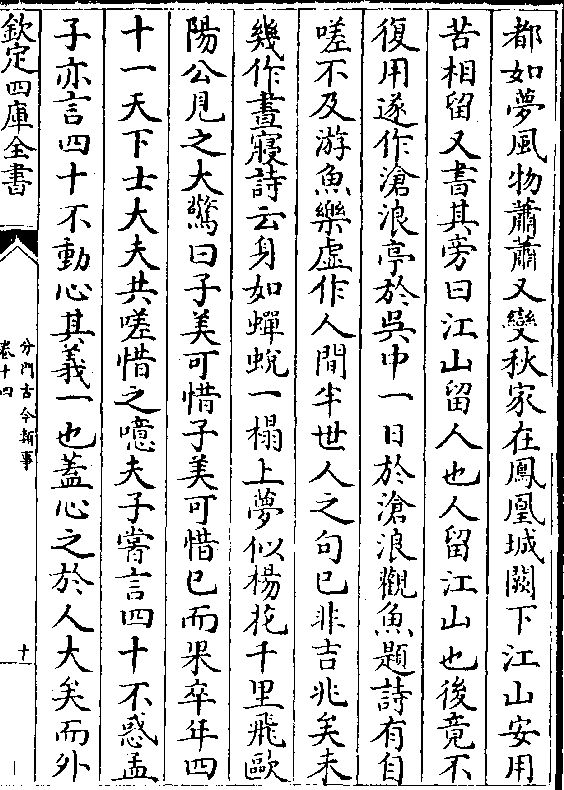 都如夢風物蕭蕭又變秋家在鳳凰城闕下江山安用
苦相留又書其旁曰江山留人也人留江山也後竟不
復用遂作滄浪亭於吳中一日於滄浪觀魚題詩有自
嗟不及游魚樂虛作人間半世人之句已非吉兆矣未
幾作晝寢詩云身如蟬蛻一榻上夢似楊花千里飛歐
陽公見之大驚曰子美可惜子美可惜已而果卒年四
十一天下士大夫共嗟惜之噫夫子嘗言四十不惑孟
子亦言四十不動心其義一也蓋心之於人大矣而外
欽定四庫全書
分門古今類事
卷十四
十一